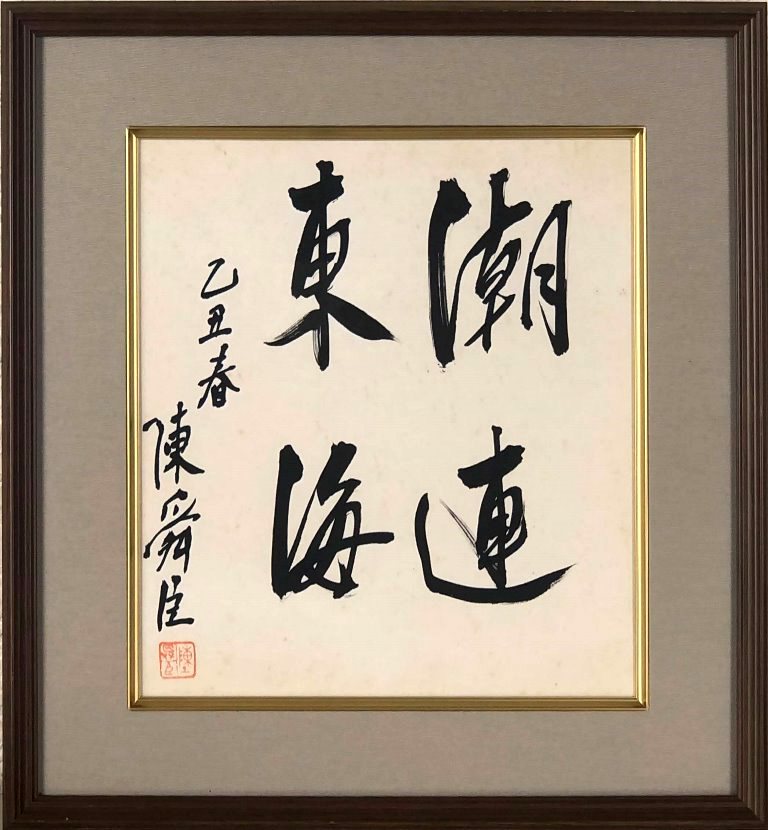 潮連
東海
乙丑春
陳舜臣